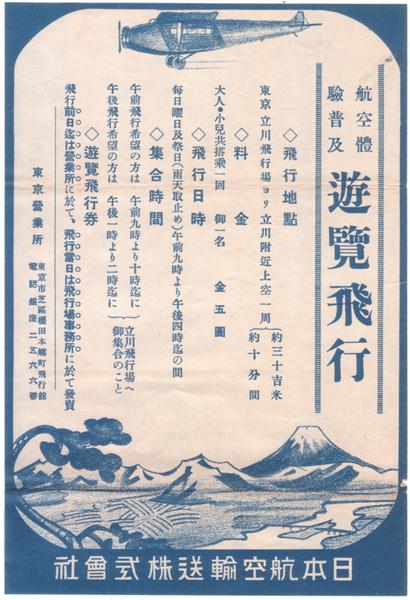 航空體驗普及
遊覽飛行
◇飛行地點
東京立川飛行場ヨリ立川附近上空一周 約三十吉米 約十分間
◇料金
大人●小兒共搭乘一回 御一名 金五圓
◇飛行日時
每日曜日及祭日(雨天取止め)午前九時より午後四時迄の間
◇集合時間
午前飛行希望の方は 午前九時より十時迄に
午後飛行希望の方は 午後一時より二時迄に
立川飛行場へ御集合のこと
◇遊覽飛行券
飛行前日迄は營業所に於て、飛行當日は飛行場事務所に於て發賣
東京營業所
東京市芝區櫻田本鄉町飛行館
電話銀座二五六六番
日本航空輸送株式會社